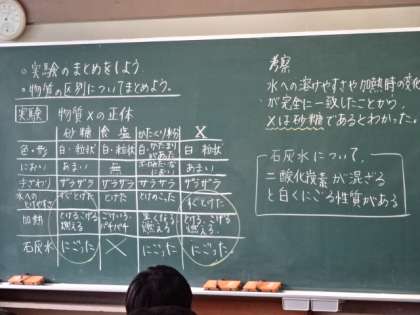 ○実験のまとめをしよう
○物質の区別についてまとめよう。
実験 物質Xの正体
砂糖 食塩 かたくり粉 X
色・形 白・粒状 白・粒状 白・かたまりがあった 白 粒状
におい あまい 無 あまい
手ざわり ザラザラ ザラザラ サラサラ ザラザラ
水へのとけやすさ すぐとけた とけた とけのこった すぐとけた
加熱 とける、こげる 燃える パチパチ 黒くなる 燃える とける、こげる 燃える。
石灰水 にごった × にごった にごった。
考察
水への溶けやすさや加熱時の変化
が完全に一致したことから、
Xは砂糖であるとわかった。
石灰水について、
二酸化炭素が混ざる
と白くにごる性質がある